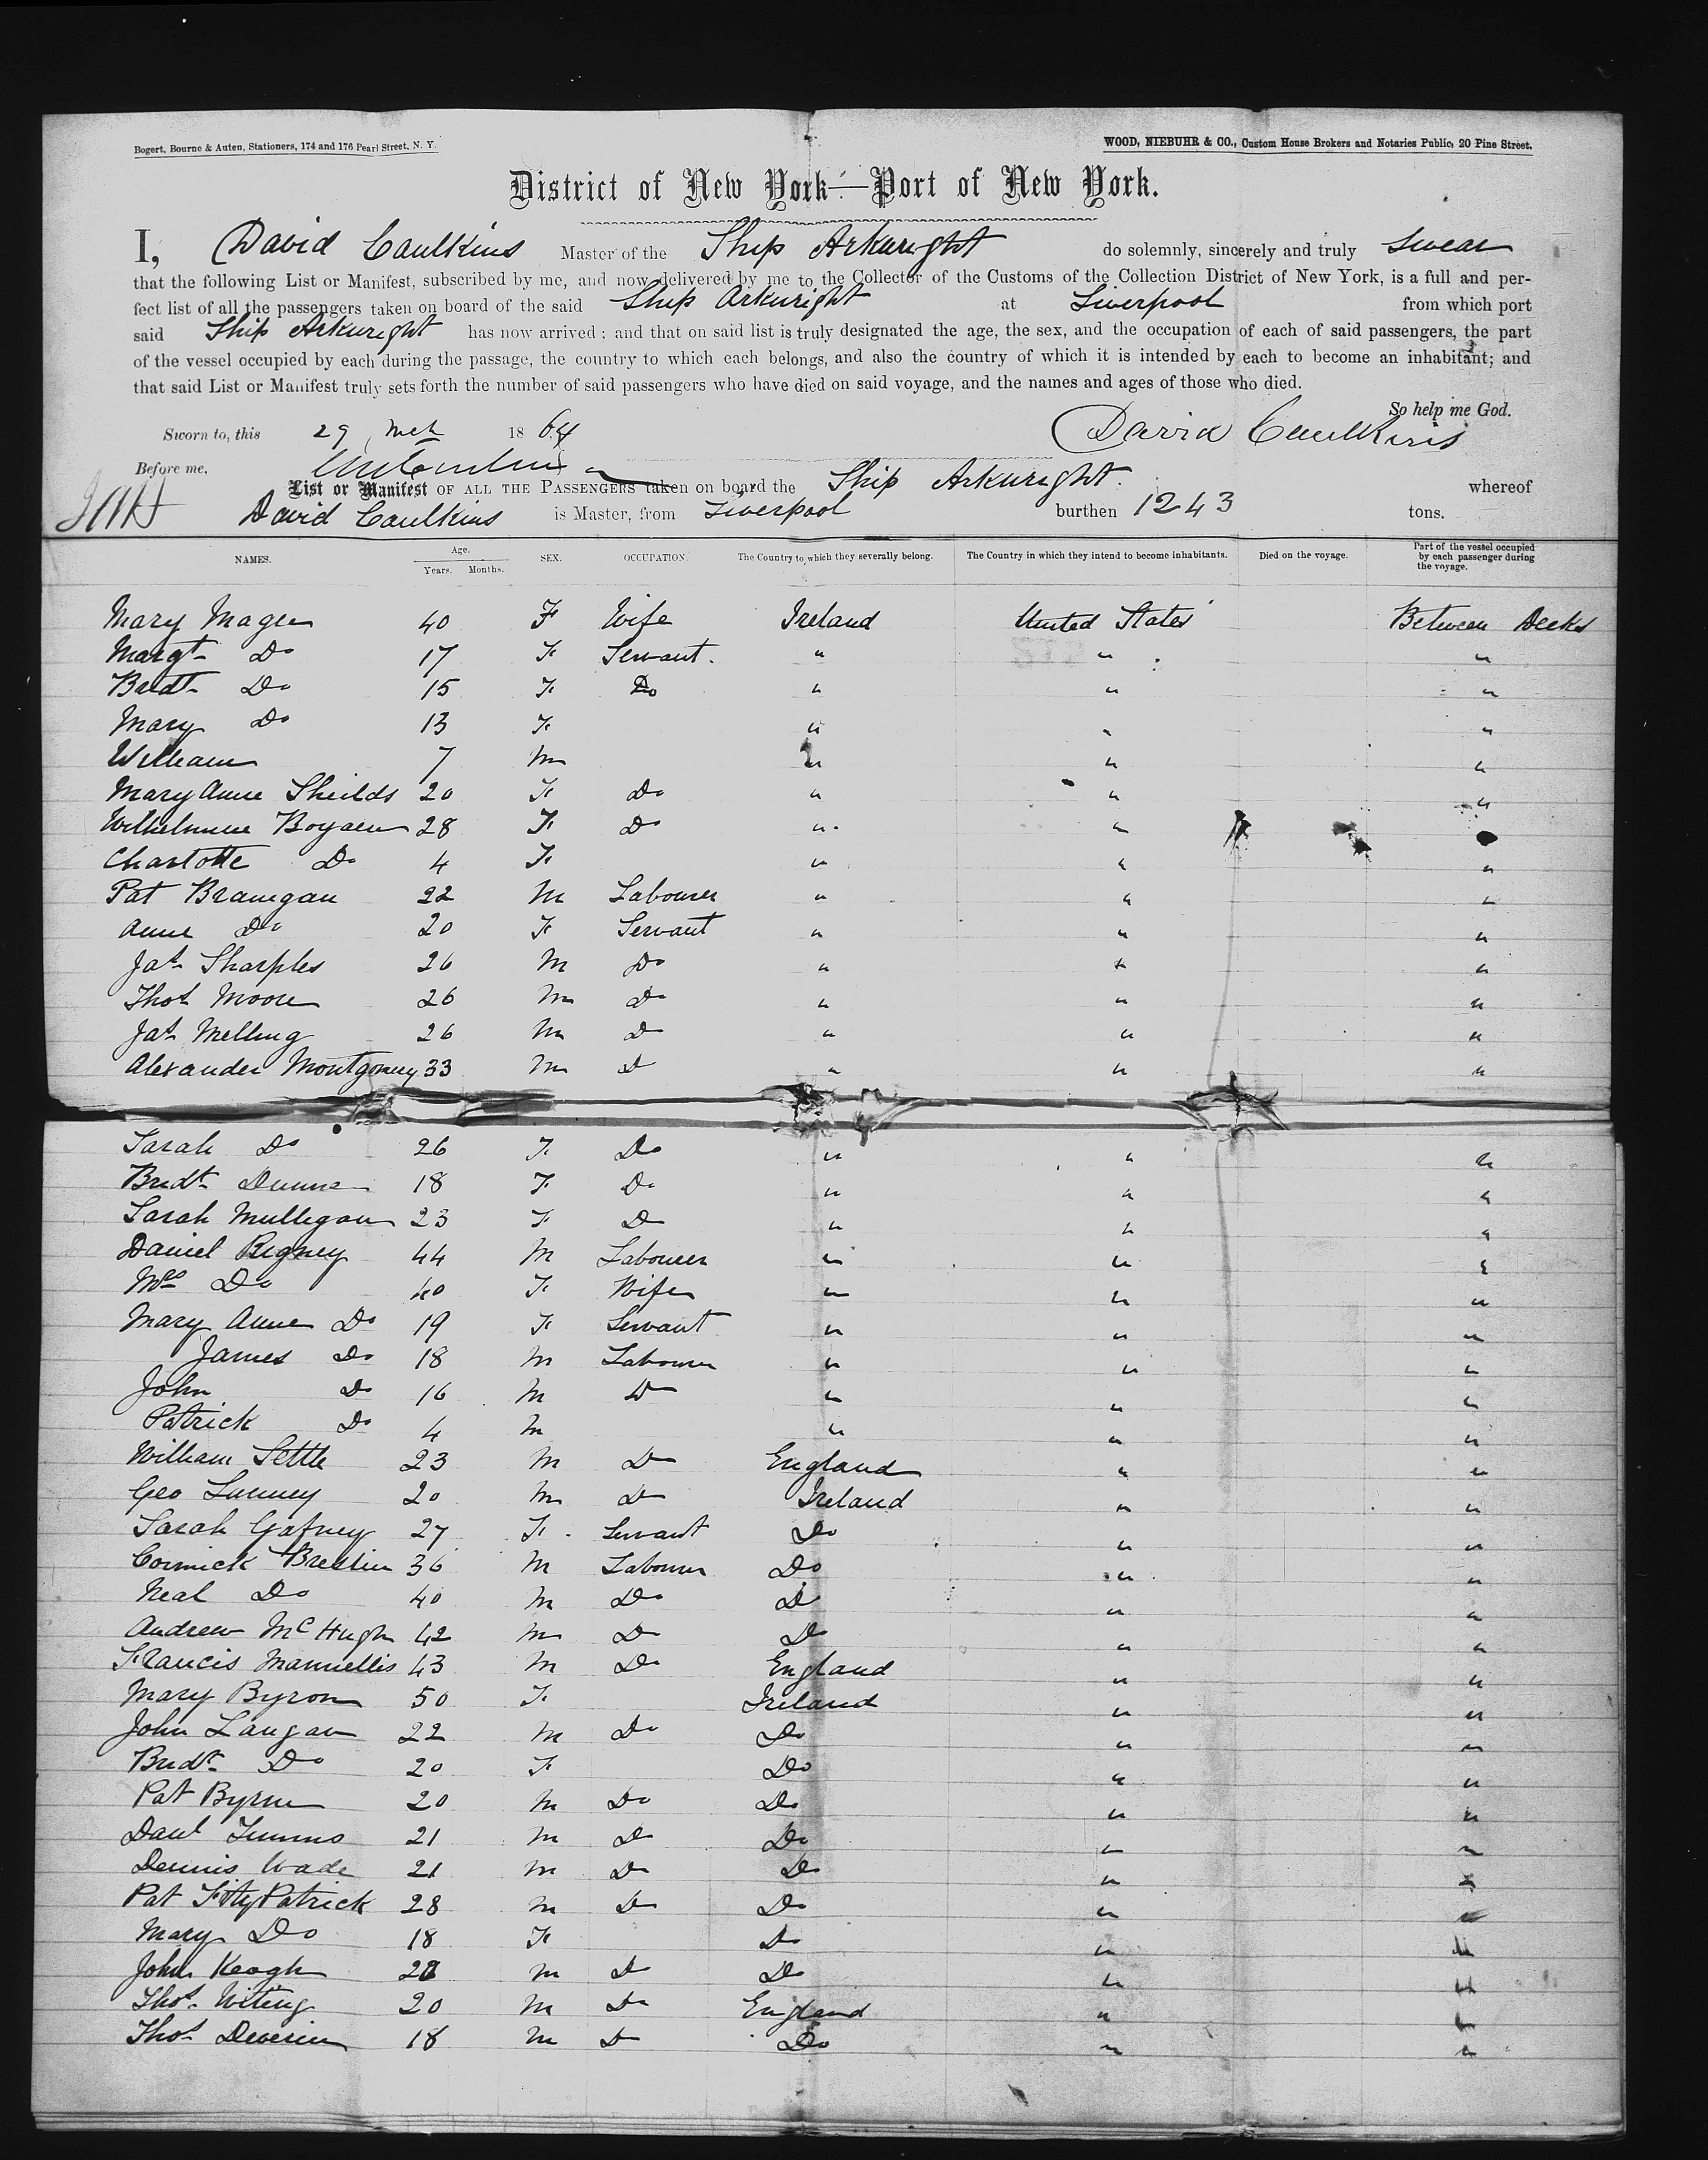 Bogert, Bourne & Auten, Stationers, 174 and 176 Pearl Street, N. Y.
WOOD, NIEBUHR & CO., Custom House Brokers and Notaries Public, 20 Pine Street.
District of New York—Port of New York.
I, David Caulkins Master of the Ship Arkwright do solemnly, sincerely and truly swear
that the following List or Manifest, subscribed by me, and now delivered by me to the Collector of the Customs of the Collection District of New York, is a full and per-
fect list of all the passengers taken on board of the said Ship Arkwright at Liverpool from which port
said Ship Arkwright has now arrived; and that on said list is truly designated the age, the sex, and the occupation of each of said passengers, the part
of the vessel occupied by each during the passage, the country to which each belongs, and also the country of which it is intended by each to become an inhabitant; and
that said List or Manifest truly sets forth the number of said passengers who have died on said voyage, and the names and ages of those who died.
So help me God.
Sworn to, this 29 Mch 1864 David Caulkins
Before me,
List or Manifest OF ALL THE PASSENGERS taken on board the Ship Arkwright whereof
David Caulkins is Master, from Liverpool burthen 1243 tons.
NAMES. Age. Years. Months. SEX. OCCUPATION. The Country to which they severally belong. The Country in which they intend to become inhabitants. Died on the voyage. Part of the vessel occupied by each passenger during the voyage.
Mary Magee 40 F Wife Ireland United States Between Decks
Margt Do 17 F Servant. " " "
Bridt Do 15 F Do " " "
Mary Do 13 F " " "
William 7 M " " "
Mary Anne Sheilds 20 F Do " " "
Wilhelmine 28 F Do " "
Charlotte Do 4 F " " "
Pat Branigan 22 M Labourer " " "
Anne Do 20 F Servant " " "
Jas Sharples 26 M Do " " "
Thos Moore 26 M Do " " "
Jas Melling 26 M Do " " "
Alexander Montgomery 33 M Do " " "
Sarah Do 26 F Do " " "
Bridt Dunne 18 F Do " " "
Sarah Mulligan 23 F Do " " "
Daniel Rigney 44 M Labourer " " "
Mrs Do 40 F Wife " " "
Mary Anne Do 19 F Servant " " "
James Do 18 M Labourer " " "
John Do 16 M Do " " "
Patrick Do 4 M " " "
William Settle 23 M Do England " "
Geo 20 M Do Ireland " "
Sarah Gafney 27 F Servant Do " "
Cormick Breslin 36 M Labourer Do " "
Neal Do 40 M Do Do " "
Andrew McHugh 42 M Do Do " "
Francis 43 M Do England " "
Mary Byron 50 F Ireland " "
John Langan 22 M Do Do " "
Bridt Do 20 F Do " "
Pat Byrne 20 M Do Do " "
Danl 21 M Do Do " "
Dennis Wade 21 M Do Do " "
Pat FitzPatrick 28 M Do Do " "
Mary Do 18 F Do " "
John Keogh M Do Do " "
Thos Witing 20 M Do England " "
Thos 18 M Do Do " "